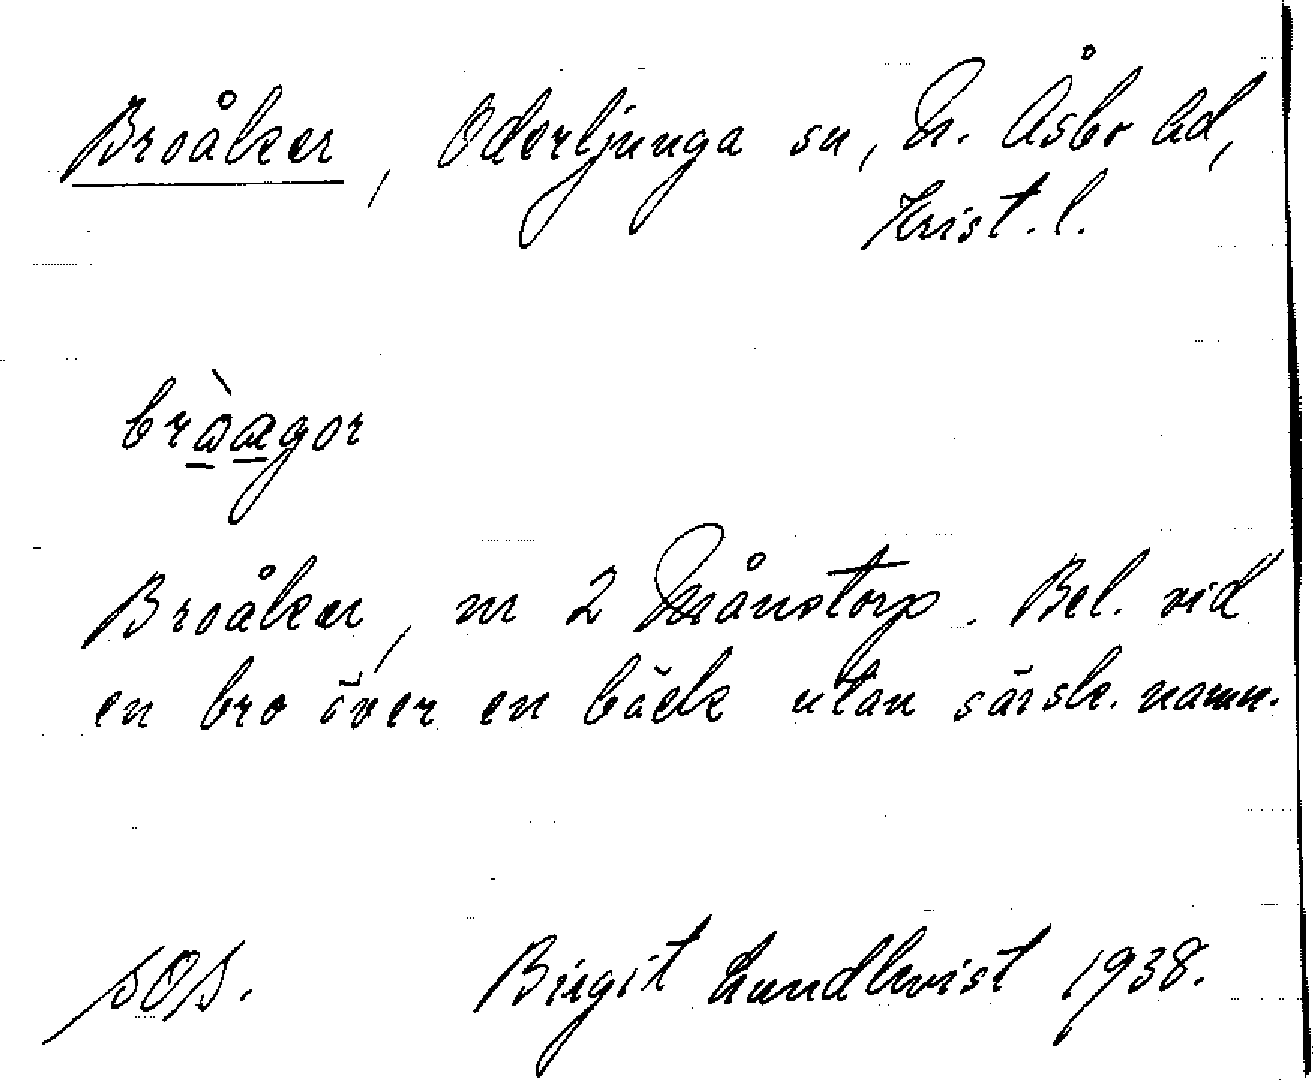 Broåker, Oderljunga sn, N. Åsbo hd,
Krist. l.
Broåker, nr 2 Månstorp. Bel. vid
en bro över en bäck utan särsk. namn.
SOS. Birgit Lundkvist 1938.